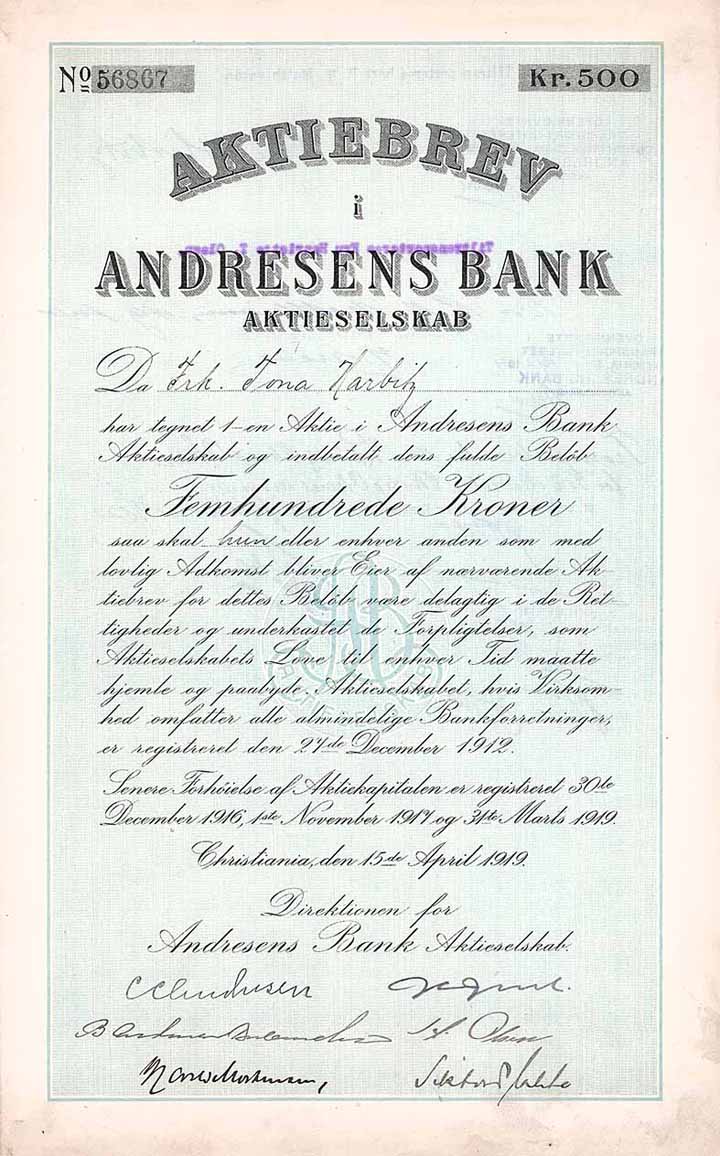 Nº 56867 Kr. 500
AKTIEBREV
i
ANDRESENS BANK
AKTIESELSKAB
Da Frk. Tona Harbitz
har tegnet 1-en Aktie i Andresens Bank
Aktieselskab og indbetalt dens fulde Beløb
Femhundrede Kroner
saa skal hun eller enhver anden som med
lovlig Adkomst bliver Eier af nærværende Ak-
tiebrev for dettes Beløb være delagtig i de Ret-
tigheder og underkastet de Forpligtelser, som
Aktieselskabets Love til enhver Tid maatte
hjemle og paabyde. Aktieselskabet, hvis Virksom-
hed omfatter alle almindelige Bankforretninger,
er registreret den 27de December 1912.
Senere Forhøielse af Aktiekapitalen er registreret 30te
December 1916, 1ste November 1917 og 31te Marts 1919.
Christiania, den 15de April 1919.
Direktionen for
Andresens Bank Aktieselskab.
Olsen